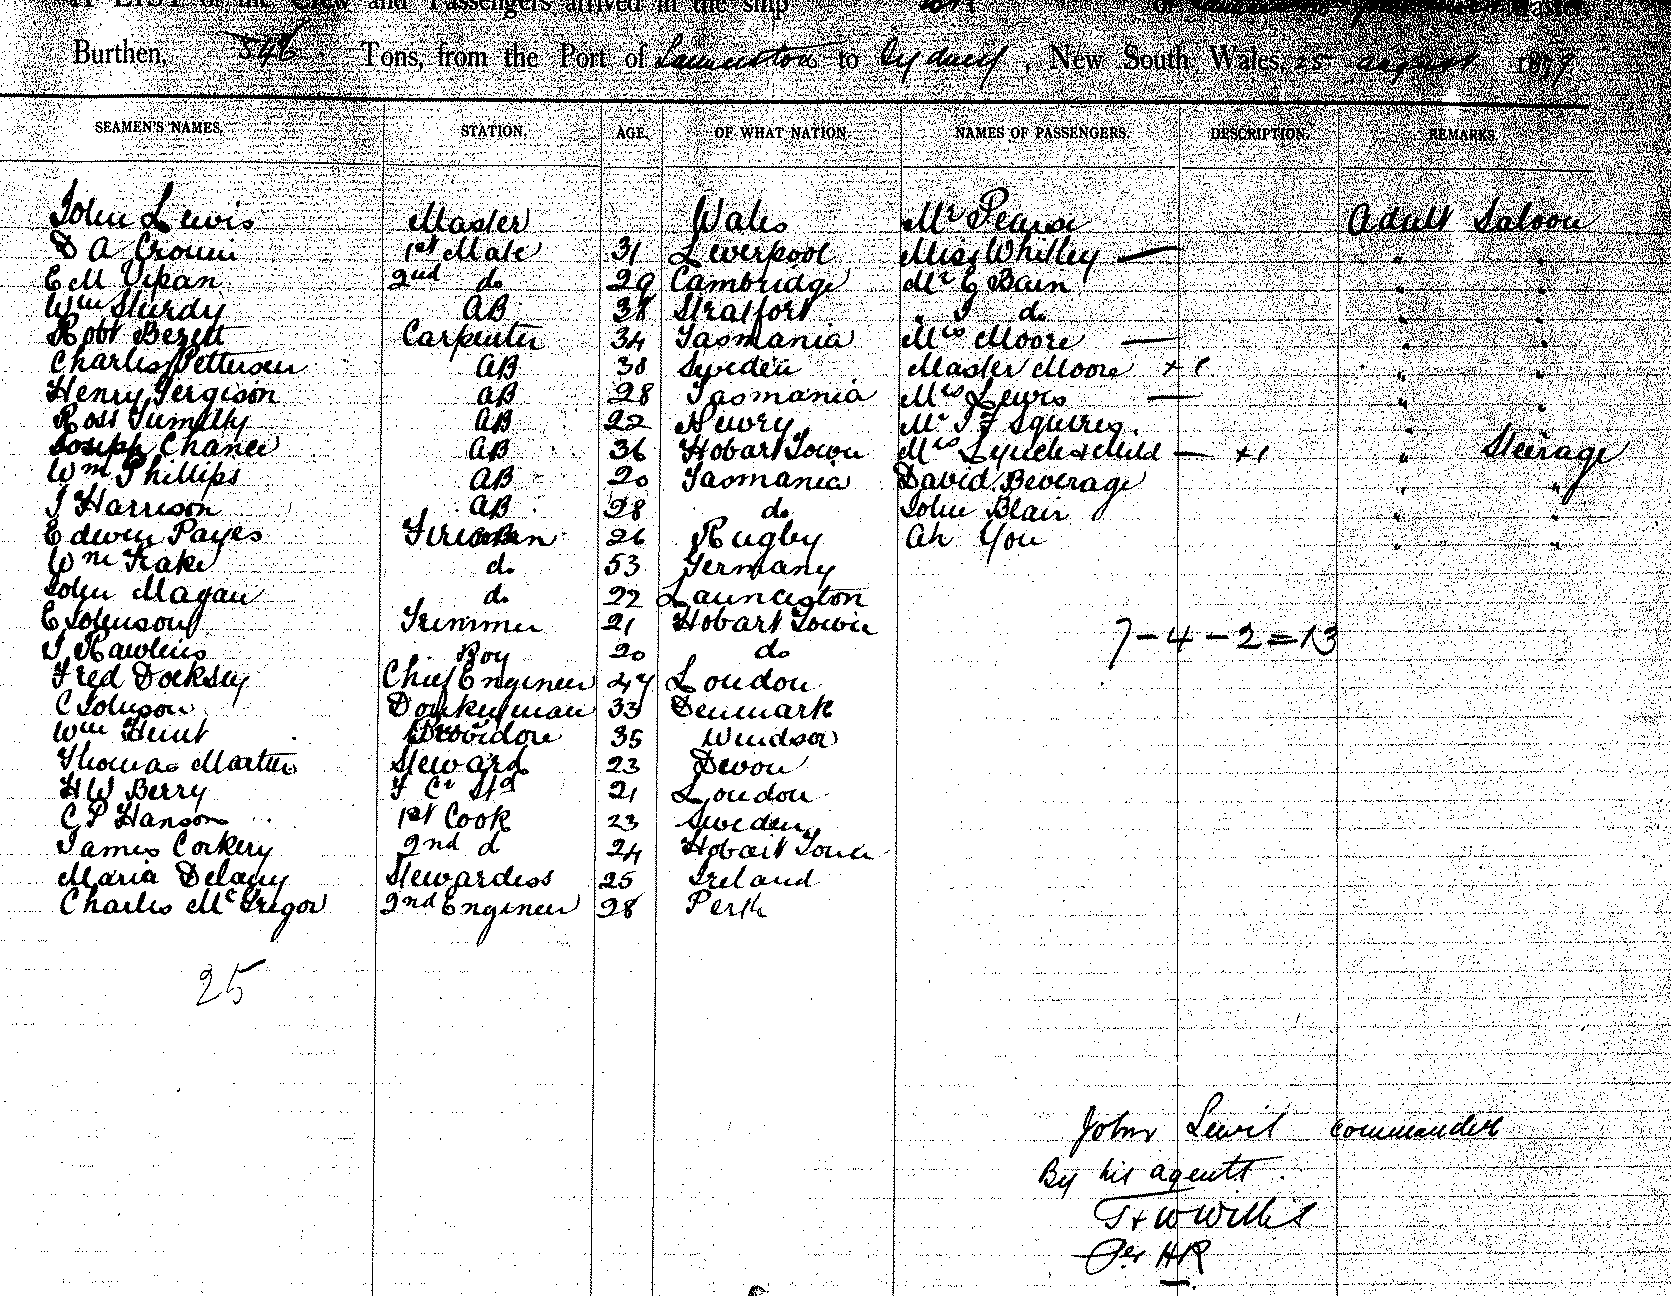 A LIST of the Crew and Passengers arrived in the ship of
Burthen, 548 Tons, from the Port of Launceston to Sydney, New South Wales, 25 August 1879
SEAMEN'S NAMES. STATION. AGE. OF WHAT NATION. NAMES OF PASSENGERS. DESCRIPTION. REMARKS.
John Lewis Master Wales Mr Pearse Adult Saloon
D A Cronin 1st Mate 31 Liverpool Miss Whitley — " "
E M Vipan 2nd do 29 Cambridge Mr E Bain " "
Wm Sturdy AB 38 Stratford " J do " "
Robt Berett Carpenter 34 Tasmania Mrs Moore — " "
Charles Pettersen AB 38 Sweden Master Moore + 1 " "
Henry Fergison AB 28 Tasmania Mrs Lewis — " "
Ross AB 22 Newry Mr J F Squires. "
Joseph Chance AB 36 Hobart Town Mrs Lynch & Child — +1 " Steerage
Wm Phillips AB 20 Tasmania David Beverage " "
J Harrison AB 28 do John Blair " "
Edwin Payes Fireman 26 Rugby Ah You " "
Wm Frake do 53 Germany
John Magan do 22 Launceston
E Johnson Trimmer 21 Hobart Town
J Rawlins Boy 20 do
7 - 4 - 2 = 13
Fred Docksey Chief Engineer 47 London
C Johnson Donkeyman 33 Denmark
Wm Hunt Providore 35 Windsor
Thomas Martin Steward 23 Devon
H W Berry F Cr Std 21 London
C P Hanson 1st Cook 23 Sweden
James Corkery 2nd d 24 Hobart Town
Maria Delany Stewardess 25 Ireland
Charles McGregor 2nd Engineer 28 Perth
25
John Lewis Commander
By his agents.
T & W Willis
Per HR